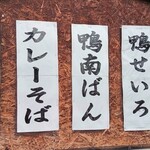 鴨せいろ
鴨南ばん
カレーそば